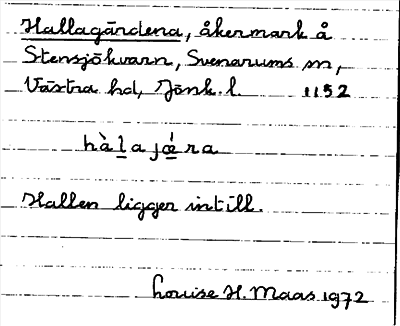 Hallagärdena, åkermark å
Stensjökvarn, Svenarums sn,
Västra hd, Jönk. l. 1152
hàlajǽra
Hallen ligger intill.
Louise H. Maas 1972